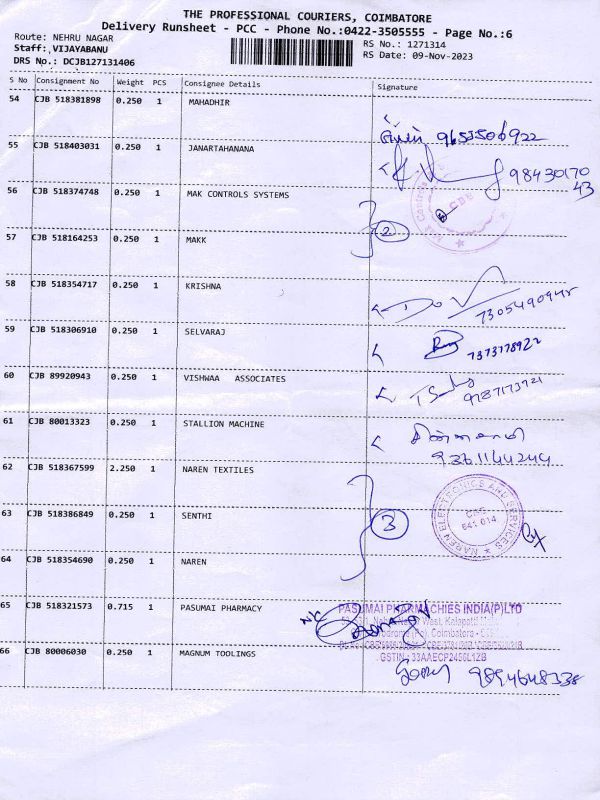 THE PROFESSIONAL COURIERS, COIMBATORE
Delivery Runsheet - PCC - Phone No.:0422-3505555 - Page No.:6
Route: NEHRU NAGAR
Staff: VIJAYABANU
DRS No.: DCJB127131406
RS No.: 1271314
RS Date: 09-Nov-2023
S No Consignment No Weight PCS Consignee Details Signature
54 CJB 518381898 0.250 1 MAHADHIR
9653506922
55 CJB 518403031 0.250 1 JANARTAHANANA
98430170
43
56 CJB 518374748 0.250 1 MAK CONTROLS SYSTEMS
2
57 CJB 518164253 0.250 1 MAKK
58 CJB 518354717 0.250 1 KRISHNA
59 CJB 518306910 0.250 1 SELVARAJ
7373778922
60 CJB 89920943 0.250 1 VISHWAA ASSOCIATES
61 CJB 80013323 0.250 1 STALLION MACHINE
9361144244
62 CJB 518367599 2.250 1 NAREN TEXTILES
NAREN ELECTRONICS AND SERVICES
CBE
641 014
63 CJB 518386849 0.250 1 SENTHI
3
64 CJB 518354690 0.250 1 NAREN
65 CJB 518321573 0.715 1 PASUMAI PHARMACY
PASUMAI PHARMACHIES INDIA(P)LTD
GSTIN : 33AAECP2456L1ZB
66 CJB 80006030 0.250 1 MAGNUM TOOLINGS
9894648338